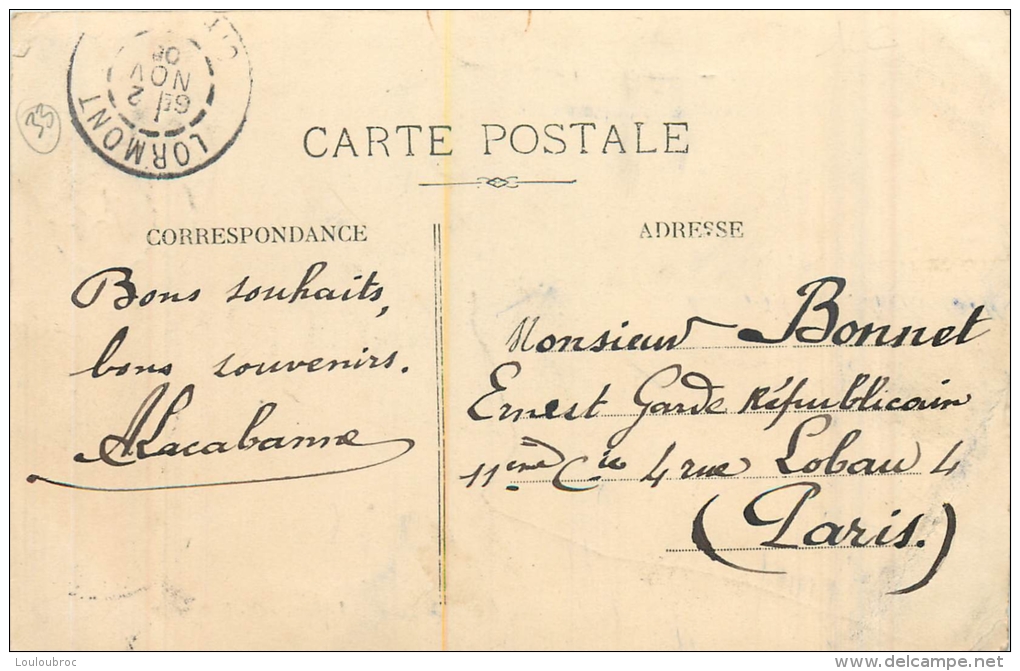 LORMONT
2
NOV
33
CARTE POSTALE
CORRESPONDANCE
Bons souhaits,
bons souvenirs.
ALacabanne
ADRESSE
Monsieur Bonnet
Ernest Garde Républicain
11ème Cie 4 rue Lobau 4
(Paris.)
Louloubroc